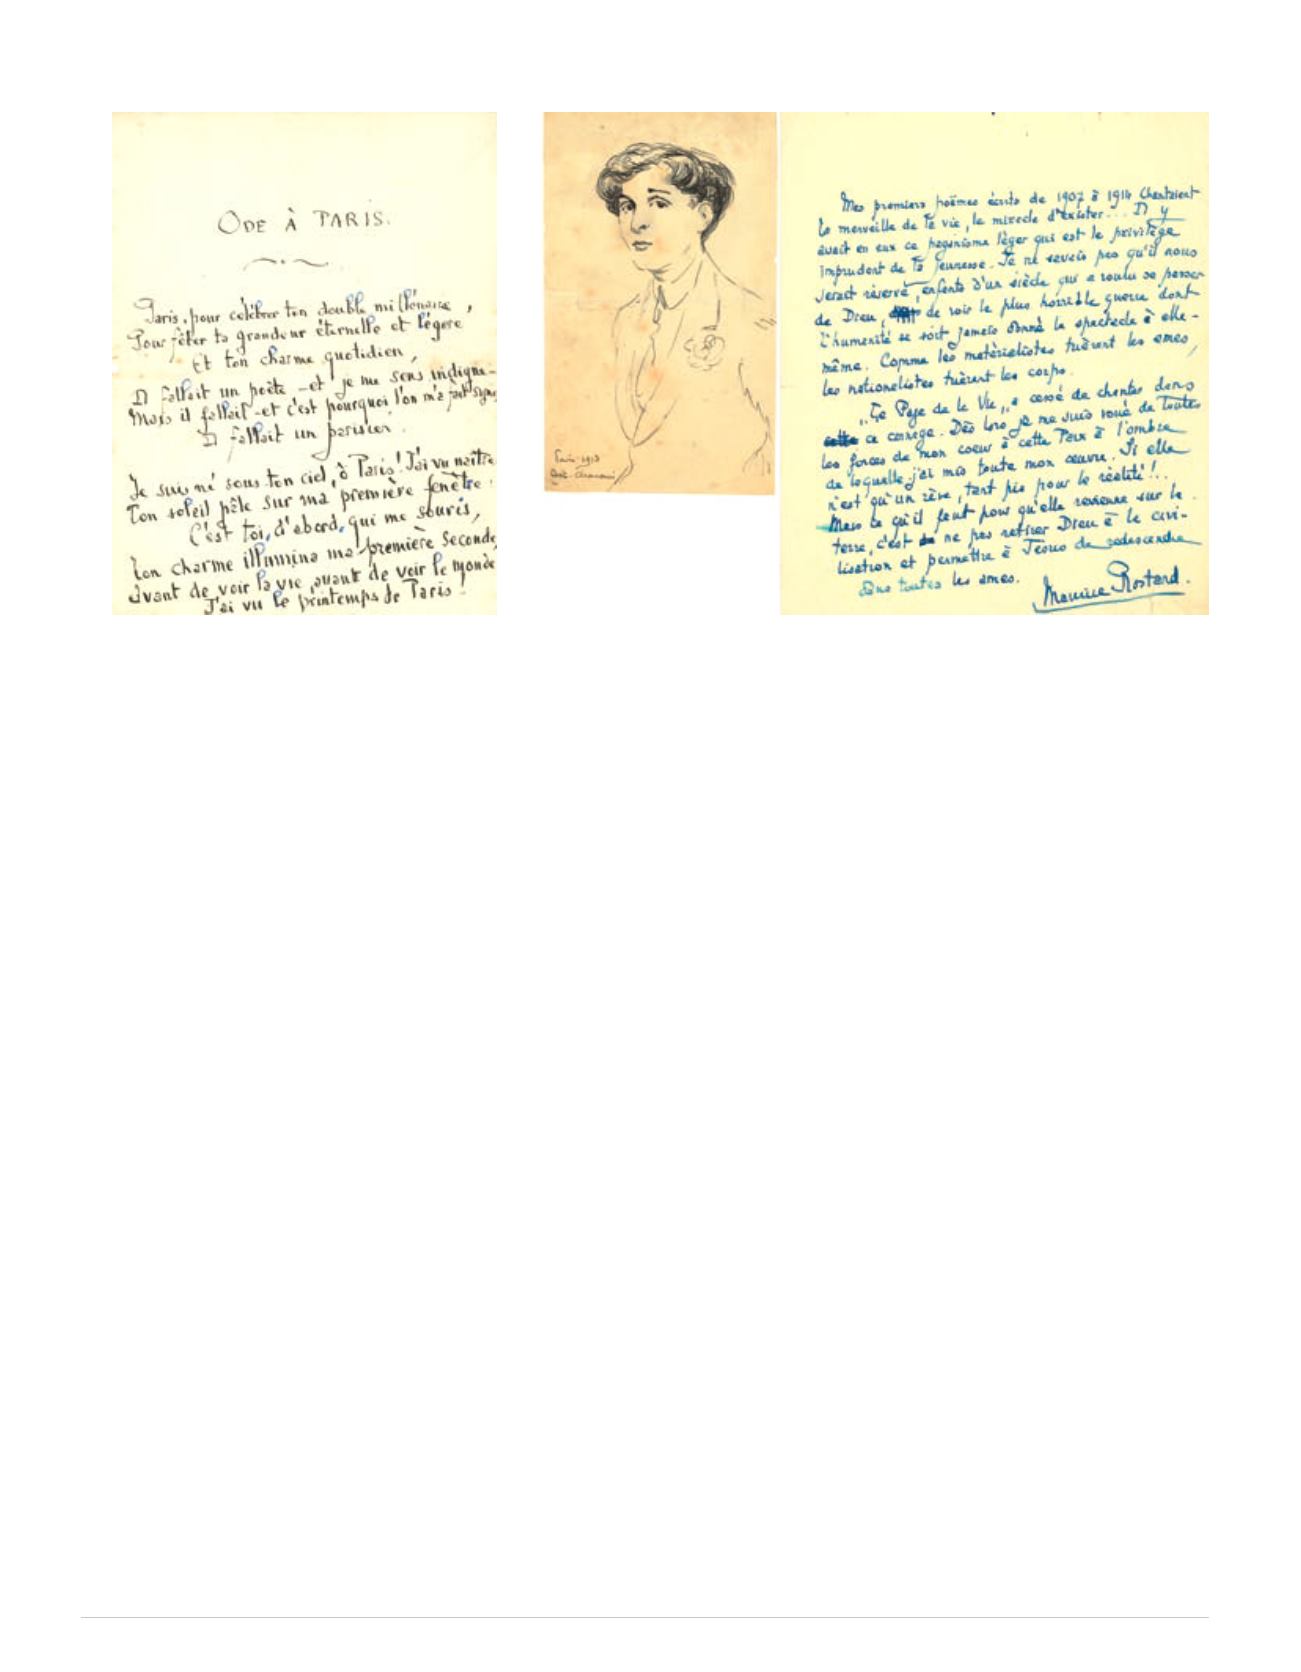 ODE À PARIS.
Paris, pour célébrer ton double millénaire,
Pour fêter ta grandeur éternelle et légère
Et ton charme quotidien,
Il fallait un poète - et je me sens indigne -
Mais il fallait - et c'est pourquoi l'on m'a fait signe
Il fallait un parisien.
Je suis né sous ton ciel, ô Paris! J'ai vu naître
Ton soleil pâle sur ma première fenêtre.
C'est toi, d'abord, qui me souris,
Ton charme illumina ma première seconde
Avant de voir la vie, avant de voir le monde
J'ai vu le printemps de Paris!
Paris 1913
Mes premiers poëmes écrits de 1907 à 1914 Chantaient
la merveille de la vie, le miracle d'exister... Il y
avait en eux ce paganisme léger qui est le privilège
imprudent de la jeunesse. Je ne savais pas qu'il nous
serait réservé, enfants d'un siècle qui a voulu se passer
de Dieu, de voir la plus horrible guerre dont
l'humanité se soit jamais donné le spectacle à elle-
même. Comme les matérialistes tuèrent les âmes,
les nationalistes tuèrent les corps.
"Le Page de la Vie" a cessé de chanter dans
ce carnage. Dès lors je me suis voué de toutes
les forces de mon coeur à cette Paix à l'ombre
de laquelle j'ai mis toute mon œuvre. Si elle
n'est qu'un rêve, tant pis pour la réalité!!..
Mais ce qu'il faut pour qu'elle revienne sur la
terre, c'est ne pas retirer Dieu à la civi-
lisation et permettre à Jésus de redescendre
dans toutes les âmes.
Maurice Rostand.